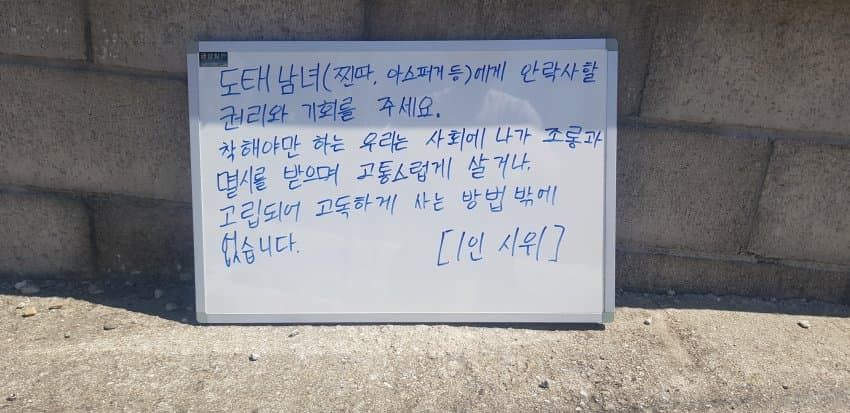 도태 남녀(찐따, 아스퍼거 등)에게 안락사할
권리와 기회를 주세요.
착해야만 하는 우리는 사회에 나가 조롱과
멸시를 받으며 고통스럽게 살거나,
고립되어 고독하게 사는 방법 밖에
없습니다. [1인 시위]